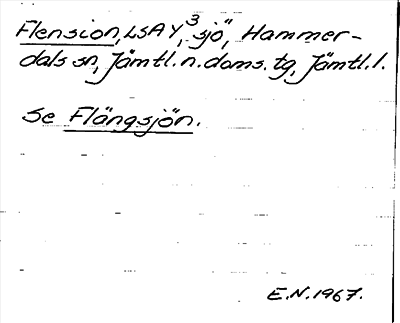 Flension, LSA Y, ³sjö", Hammer-
dals sn, Jämtl. n. doms. tg, Jämtl. l.
Se Flängsjön.
E.N. 1967.